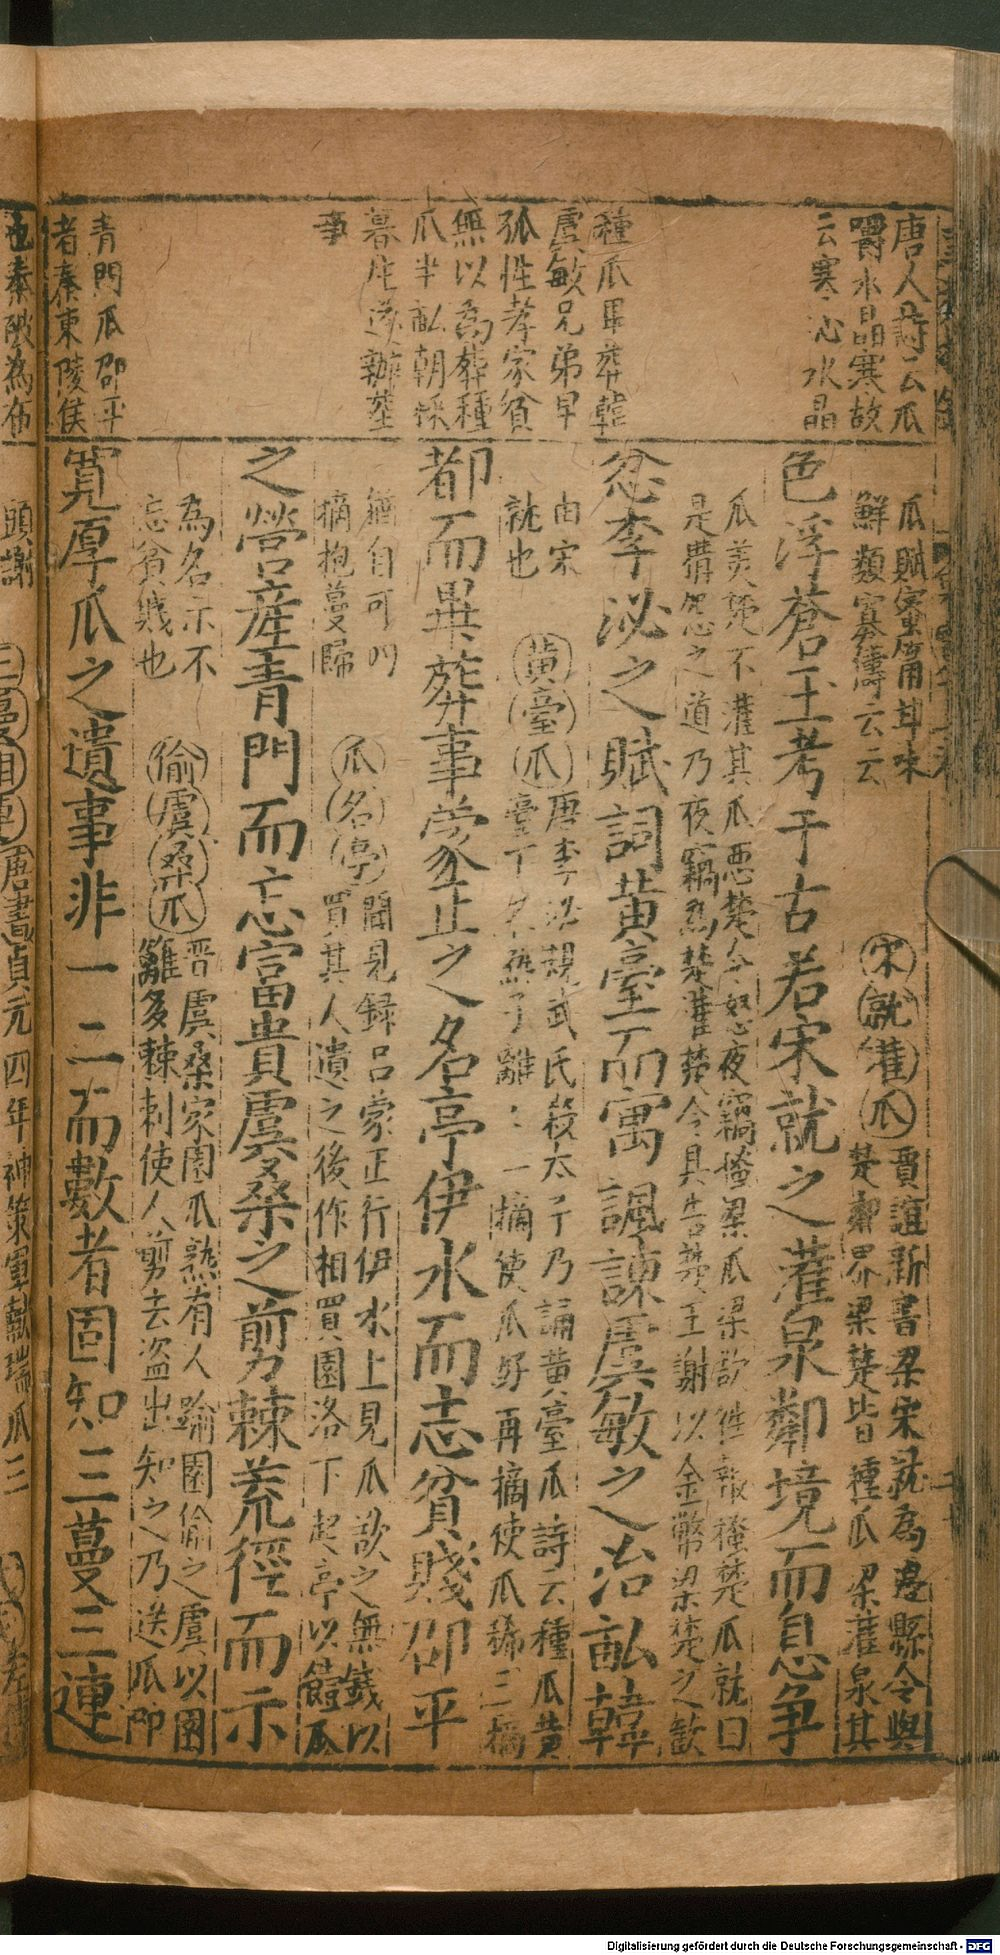 唐人詩云瓜
嚼水晶寒故
云寒沁水晶
種瓜畢葬韓
虞敏兄弟早
孤性孝家貧
無以為葬種
瓜半畝朝採
暮生遂辦葬
事
青門瓜邵平
者秦東陵侯
也秦破為布
瓜賦蜜甘味
鮮類寡儔云云
宋就灌瓜
賈誼新書梁宋就為邊縣令與
楚鄰界梁楚皆種瓜梁灌泉其
色浮蒼玉考于古若宋就之灌泉鄰境而息争
瓜美楚不灌其瓜惡楚令怒夜竊搔梁瓜梁欲徃報搔楚瓜就曰
是搆怨之道乃夜竊為楚灌楚令具告楚王謝以金幣梁楚之歡
忿李泌之賦詞黄臺而寓諷諫虞敏之治畝韓
由宋
就也
黄臺瓜
唐李泌規武氏殺太子乃誦黄臺瓜詩云種瓜黄
臺下瓜熟子離離一摘使瓜好再摘使瓜稀三摘
都而畢葬事蒙正之名亭伊水而志貧賤邵平
猶自可四
摘抱蔓歸
瓜名亭
聞見録吕蒙正行伊水上見瓜欲之無錢以
買其人遺之後作相買園洛下起亭以饐瓜
之營産青門而忘富貴虞桑之剪棘荒徑而示
為名示不
忘貧賤也
偷虞桑瓜
晋虞桑家園瓜熟有人踰園偷之虞以園
籬多棘刺使人剪去盗出知之乃送瓜叩
寛厚瓜之遺事非一二而數者固知三蔓三連
頭謝
三蔓相連
唐書貞元四年神策軍獻瑞瓜三
Digitalisierung gefördert durch die Deutsche Forschungsgemeinschaft - DFG